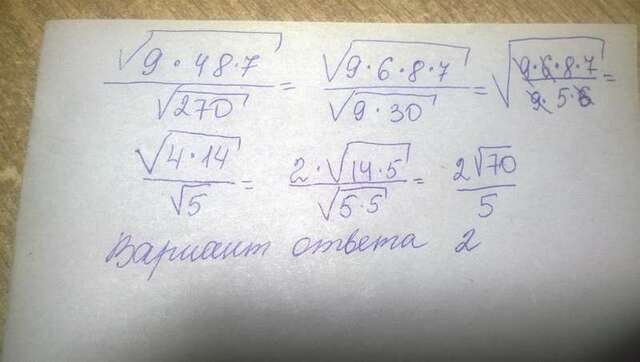 √(9·48·7)/√270 = √(9·6·8·7)/√(9·30) = √((9·6·8·7)/(9·5·6)) =
√(4·14)/√5 = 2·√(14·5)/√(5·5) = 2√70/5
Вариант ответа 2